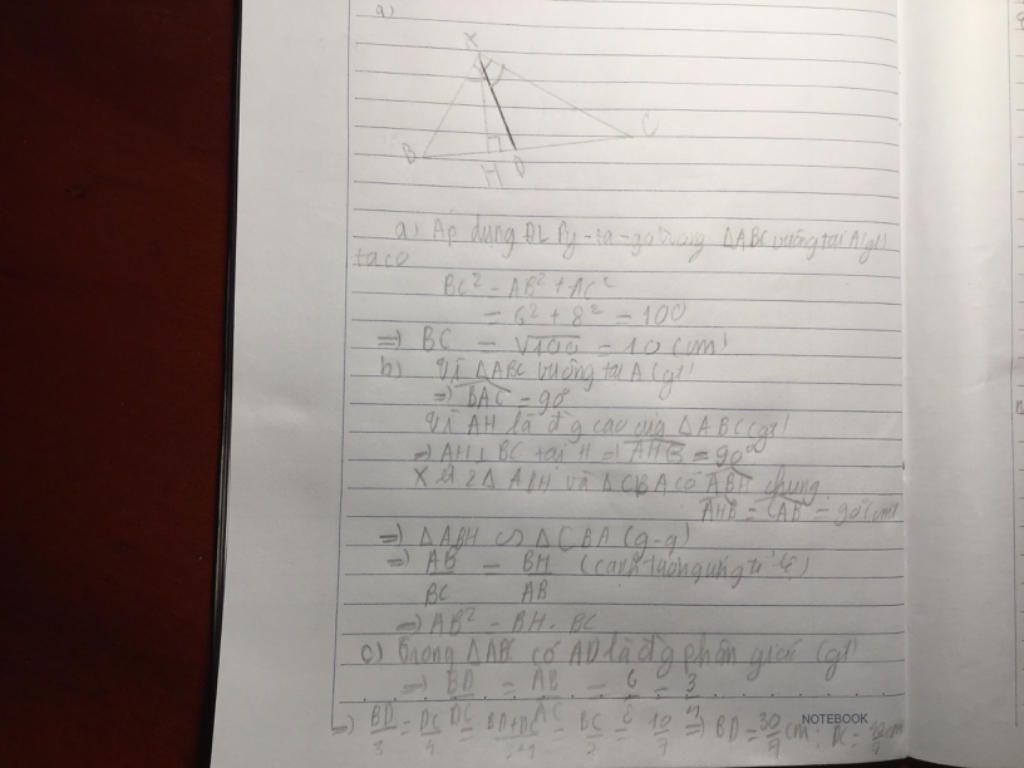 a)
A
B
C
H
D
a) Áp dụng ĐL Py-ta-go trong ΔABC vuông tại A (gt)
ta có
BC² = AB² + AC²
= 6² + 8² = 100
=) BC = √100 = 10 (cm)
b) Vì ΔABC vuông tại A (gt)
=) BAC = 90°
Vì AH là đg cao của ΔABC (gt)
=) AH⊥BC tại H =) AHB = 90°
Xét 2Δ ABH và ΔCBA có ABH chung
AHB = CAB = 90° (cmt)
=) ΔABH ∽ ΔCBA (g-g)
=) AB/BC = BH/AB (cạnh tương ứng tỉ lệ)
=) AB² = BH. BC
c) Trong ΔABC có AD là đg phân giác (gt)
=) BD/DC = AB/AC = 6/8 = 3/4
=) BD/3 = DC/4 = BD+DC/3+4 = BC/7 = 10/7 =) BD = 30/7 cm; DC = 40/7 cm
NOTEBOOK